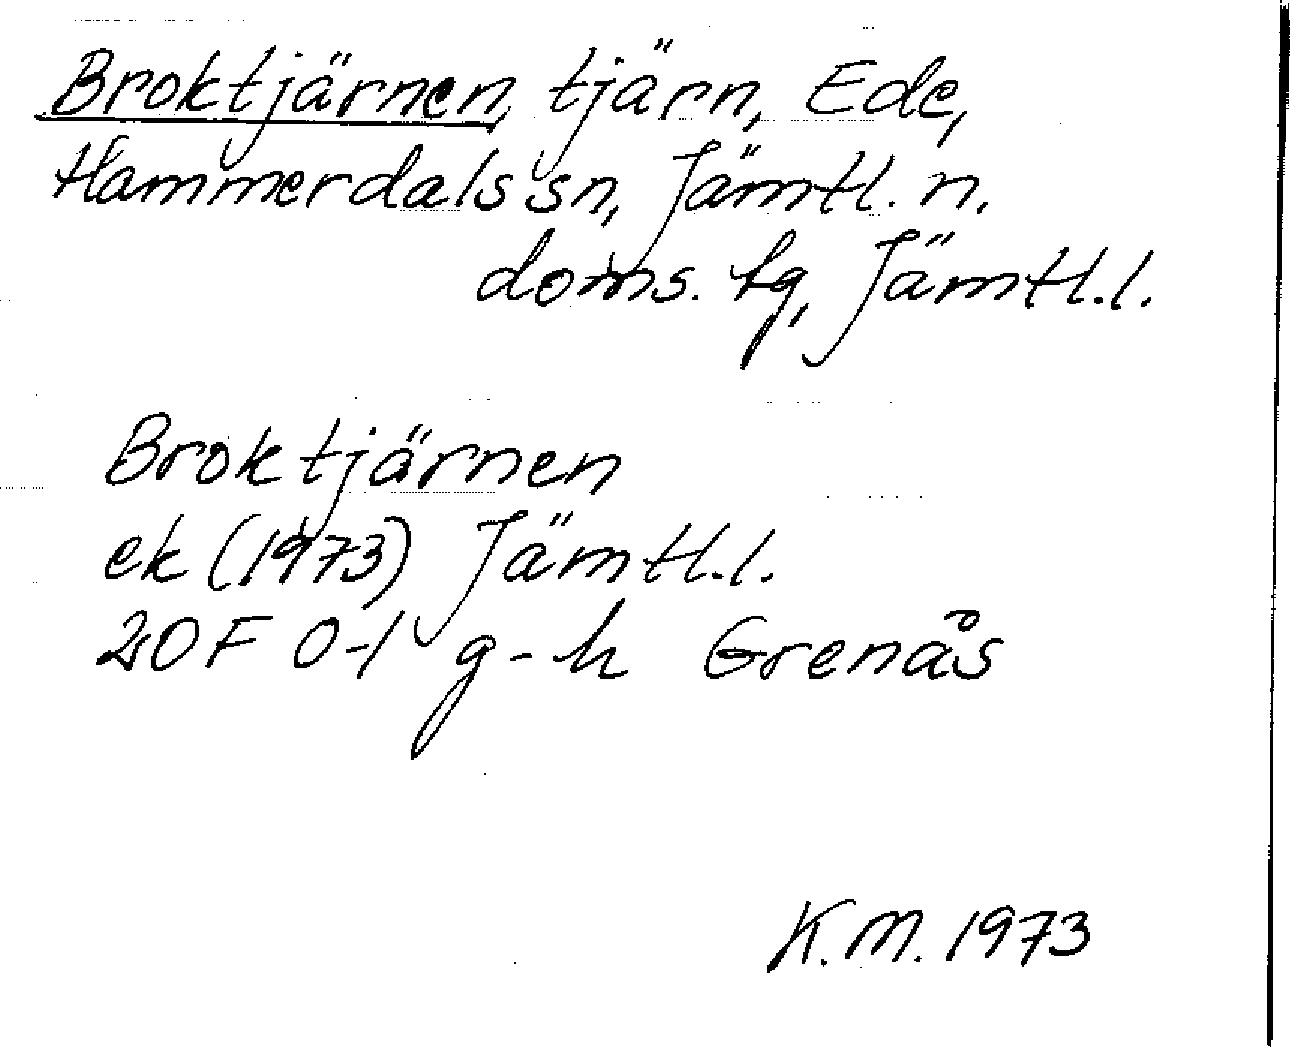 Broktjärnen, tjärn, Ede,
Hammerdals sn, Jämtl. n.
doms. tg, Jämtl. l.
Broktjärnen
ek (1973) Jämtl. l.
20F 0-1 g-h Grenås
K.M. 1973